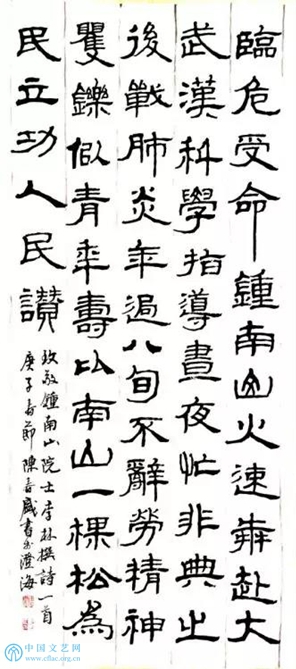 臨危受命鍾南山火速奔赴大
武漢科學指導晝夜忙非典之
後戰肺炎年過八旬不辭勞精神
矍鑠似青年壽比南山一棵松為
民立功人民讚
致敬鍾南山院士李林撰詩一首
庚子春節陳書於澄海
中国文艺网
www.cflac.org.cn